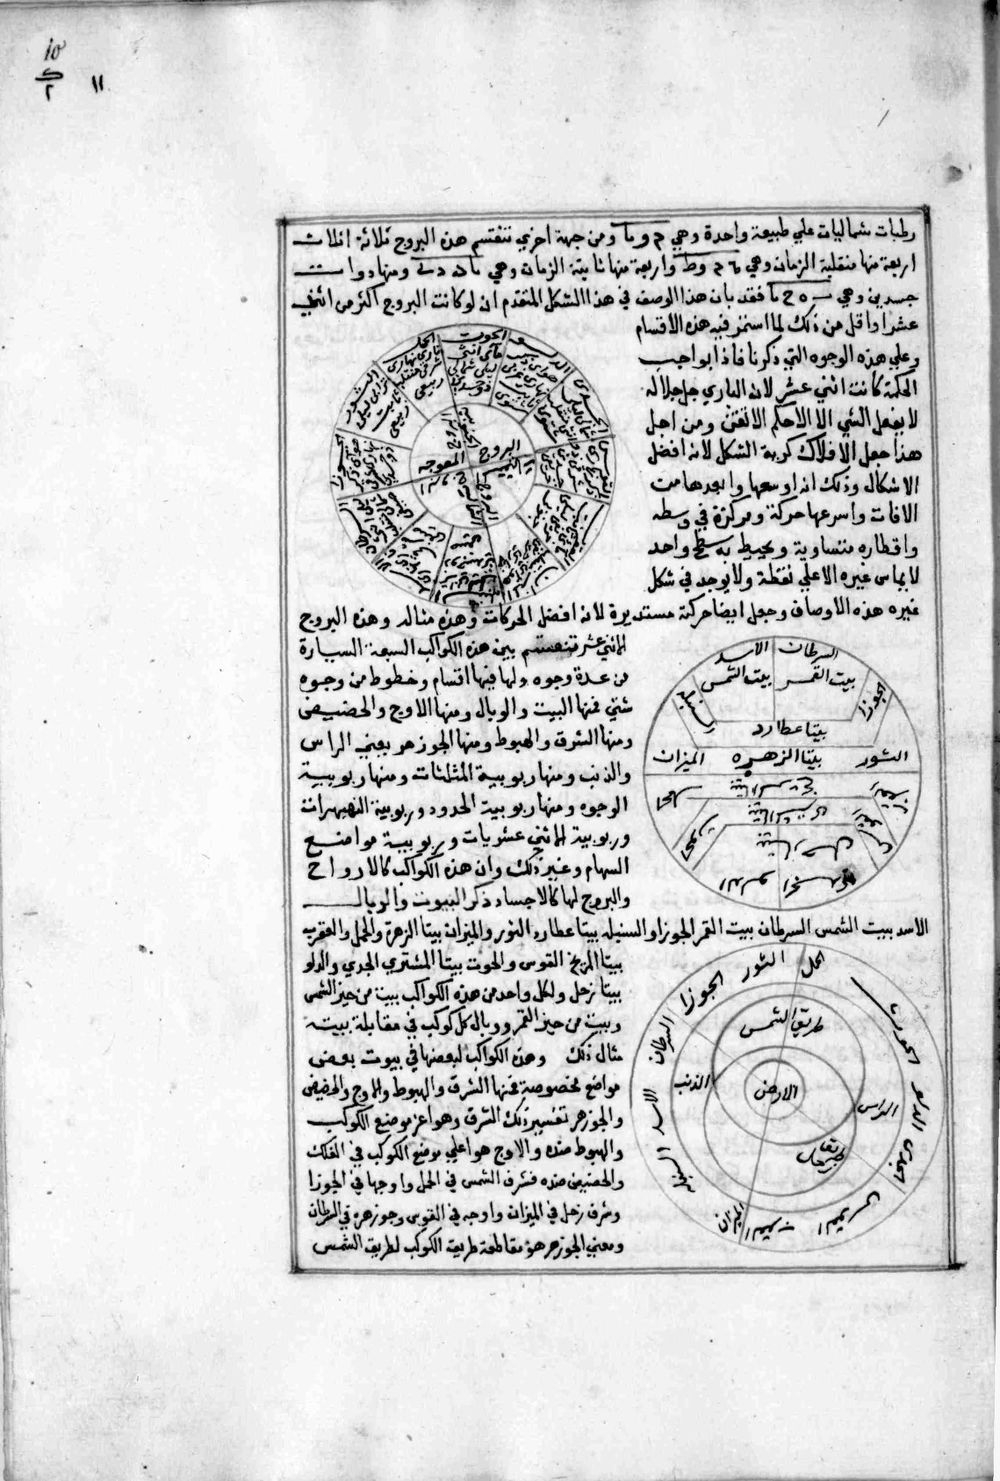 ١١
رطبات شماليات علي طبيعة واحدة وهي ومن جهة اخري تنقسم هذه البروج ثلاثة اثلاث
اربعة منها منقلبة الزمان وهي واربعة منها ثابتة الزمان وهي ومنها ذوات
جسدين وهي فقد بان هذا الوصف في هذا الشكل المتقدم ان لو كانت البروج اكثر من اثني
عشر او اقل من ذلك لما استمر فيه هذه الاقسام
وعلي هذه الوجوه التي ذكرنا فاذا بواجب
الحكمة كانت اثني عشر لان الباري جل جلاله
لا يفعل الشي الا الاحكم الاتقن ومن اجل
هذا جعل الافلاك كرية الشكل لانه افضل
الاشكال وذلك انه اوسعها وابعدها من
الافات واسرعها حركة ومركزه في وسطه
واقطاره متساوية ويحيط به سطح واحد
لا يماس غيره الا علي نقطة ولا يوجد في شكل
غيره هذه الاوصاف وجعل ايضا حركته مستديرة لانه افضل الحركات وهذه مثاله وهذه البروج
الاثني عشر تنقسم بين هذه الكواكب السبعة السيارة
من عدة وجوه ولها فيها اقسام وخطوط من وجوه
شتي فمنها البيت والوبال ومنها الاوج والحضيض
ومنها الشرف والهبوط ومنها الجوزهر يعني الراس
والذنب ومنها ربوبية المثلثات ومنها ربوبية
الوجوه ومنها ربوبية الحدود وربوبية النهبهرات
وربوبية الاثني عشريات وربوبية مواضع
السهام وغير ذلك وان هذه الكواكب كالارواح
والبروج لها كالاجساد ذكر البيوت والوبال
الاسد بيت الشمس السرطان بيت القمر الجوزا والسنبله بيتا عطارد الثور والميزان بيتا الزهرة والحمل والعقرب
بيتا المريخ القوس والحوت بيتا المشتري الجدي والدلو
بيتا زحل ولكل واحد من هذه الكواكب بيت من حيز الشمس
وبيت من حيز القمر ووبال كل كوكب في مقابلة بيته
مثال ذلك وهذه الكواكب لبعضها في بيوت بعض
مواضع مخصوصة فمنها الشرف والهبوط والاوج والحضيض
والجوزهر تفسير ذلك الشرف وهو اعز موضع الكوكب
والهبوط ضده والاوج هو اعلي موضع الكوكب في الفلك
والحضيض ضده فشرف الشمس في الحمل واوجها في الجوزا
وشرف زحل في الميزان واوجه في القوس وجوزهره في السرطان
ومعني الجوزهر هو مقاطعة طريق الكوكب لطريق الشمس
الحمل
الحوت
الدلو
الجدي
القوس
الثور
الجوزا
البروج
المعوجه
السرطان
الاسد
بيت القمر
بيت الشمس
الجوزا
السنبله
بيتا عطارد
الثور
بيتا الزهره
الميزان
الحمل
الثور
الجوزا
السرطان
الاسد
السنبله
الميزان
الجدي
الدلو
الحوت
طريق الشمس
الارض
الذنب
الراس